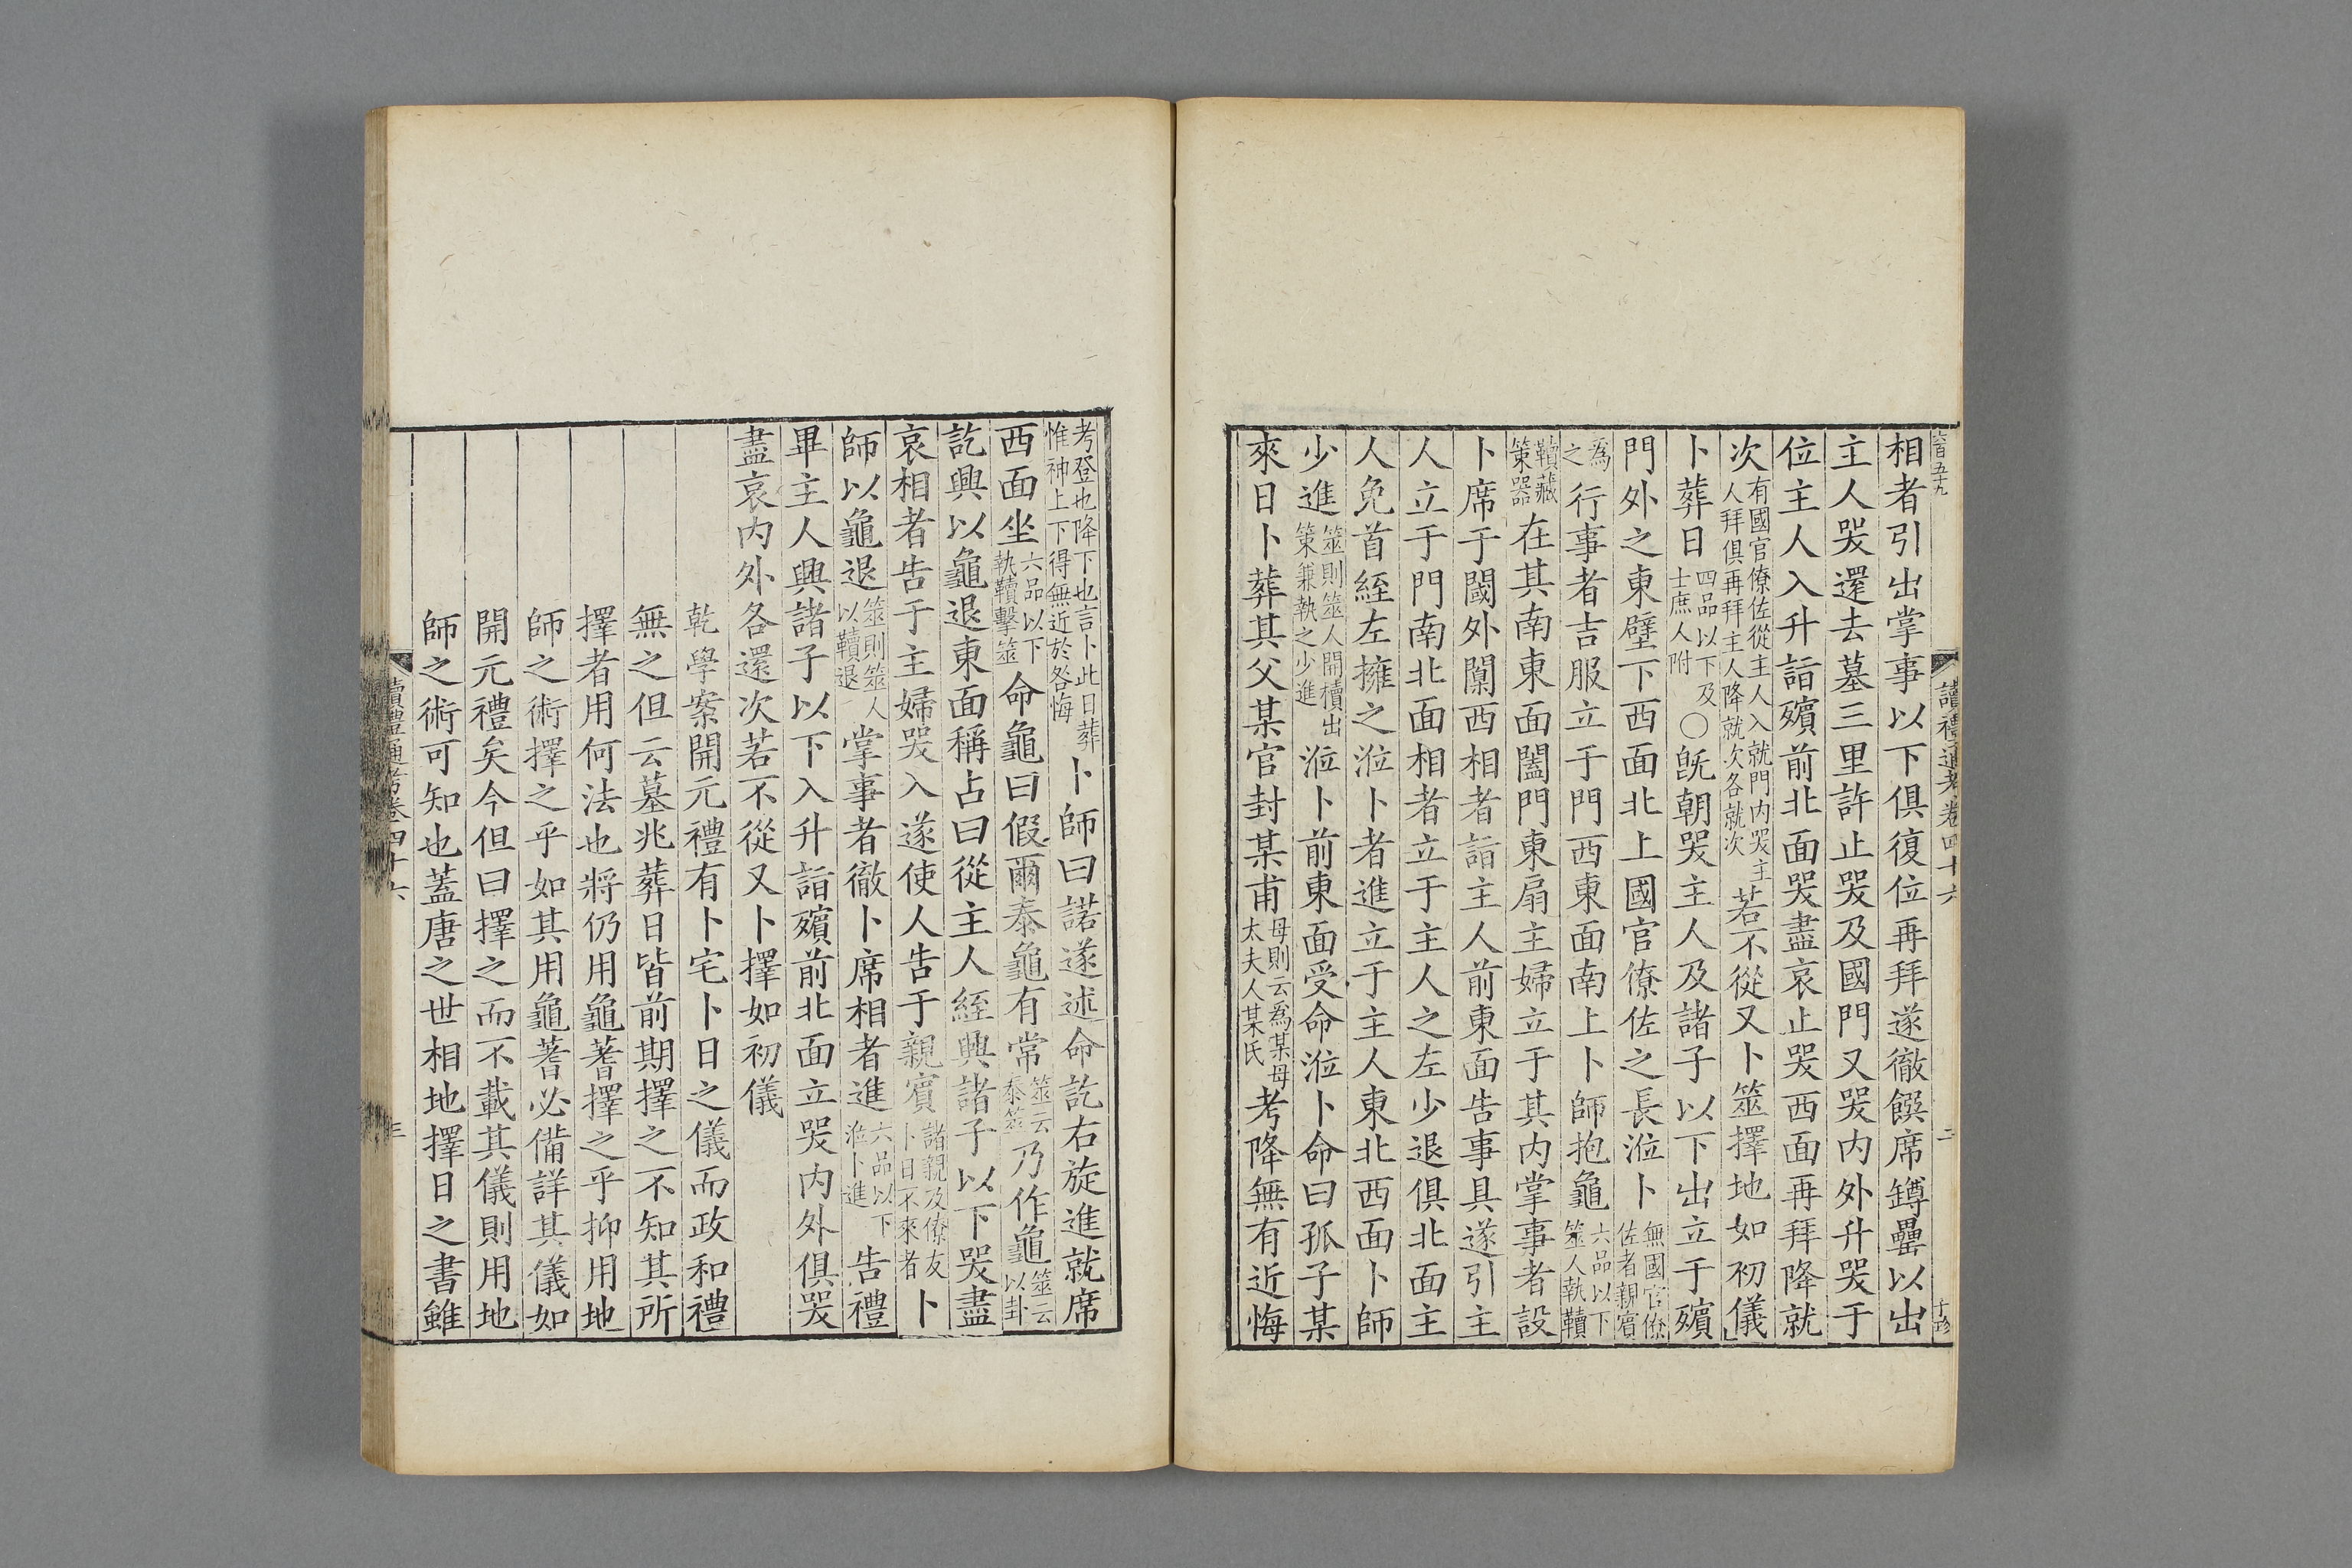 相者引出掌事以下俱復位再拜遂徹饌席罇罍以出
主人哭還去墓三里許止哭及國門又哭内外升哭于
位主人入升詣殯前北面哭盡哀止哭西面再拜降就
次有國官僚佐從主人入就門内哭主人拜俱再拜主人降就次各就次若不從又卜筮擇地如初儀
卜葬日四品以下及士庶人附〇旣朝哭主人及諸子以下出立于殯
門外之東壁下西面北上國官僚佐之長涖卜無國官僚佐者親賓
爲之行事者吉服立于門西東面南上卜師抱龜六品以下筮人執韇
韇藏策器在其南東面闔門東扇主婦立于其内掌事者設
卜席于闑外闃西相者詣主人前東面告事具遂引主
人立于門南北面相者立于主人之左少退俱北面主
人免首絰左擁之涖卜者進立于主人東北西面卜師
少進筮則筮人開櫝出策兼執之少進涖卜前東面受命涖卜命曰孤子某
來日卜葬其父某官封某甫母則云爲某母太夫人某氏考降無有近悔
考登也降下也言卜此日葬惟神上下得無近於咎悔卜師曰諾遂述命訖右旋進就席
西面坐六品以下執韇擊筮命龜曰假爾泰龜有常筮云泰筮乃作龜筮云以卦
訖興以龜退東面稱占曰從主人絰興諸子以下哭盡
哀相者告于主婦哭入遂使人告于親賓諸親及僚友卜日不來者卜
師以龜退筮則筮人以韇退掌事者徹卜席相者進六品以下涖卜進告禮
畢主人興諸子以下入升詣殯前北面立哭内外俱哭
盡哀内外各還次若不從又卜擇如初儀
乾學案開元禮有卜宅卜日之儀而政和禮
無之但云墓兆葬日皆前期擇之不知其所
擇者用何法也將仍用龜蓍擇之乎抑用地
師之術擇之乎如其用龜蓍必備詳其儀如
開元禮矣今但曰擇之而不載其儀則用地
師之術可知也蓋唐之世相地擇日之書雖
讀禮通考卷四十六
二
讀禮通考卷四十六
三